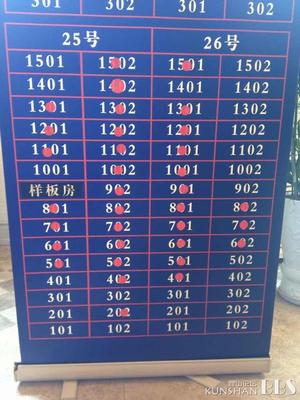 302 302 302
25号 26号
1501 1502 1501 1502
1401 1402 1401 1402
1301 1302 1301 1302
1201 1202 1201 1202
1101 1102 1101 1102
1001 1002 1001 1002
样板房 902 901 902
801 802 801 802
701 702 701 702
601 602 601 602
501 502 501 502
401 402 401 402
301 302 301 302
201 202 201 202
101 102 101 102
KUNSHAN BBS